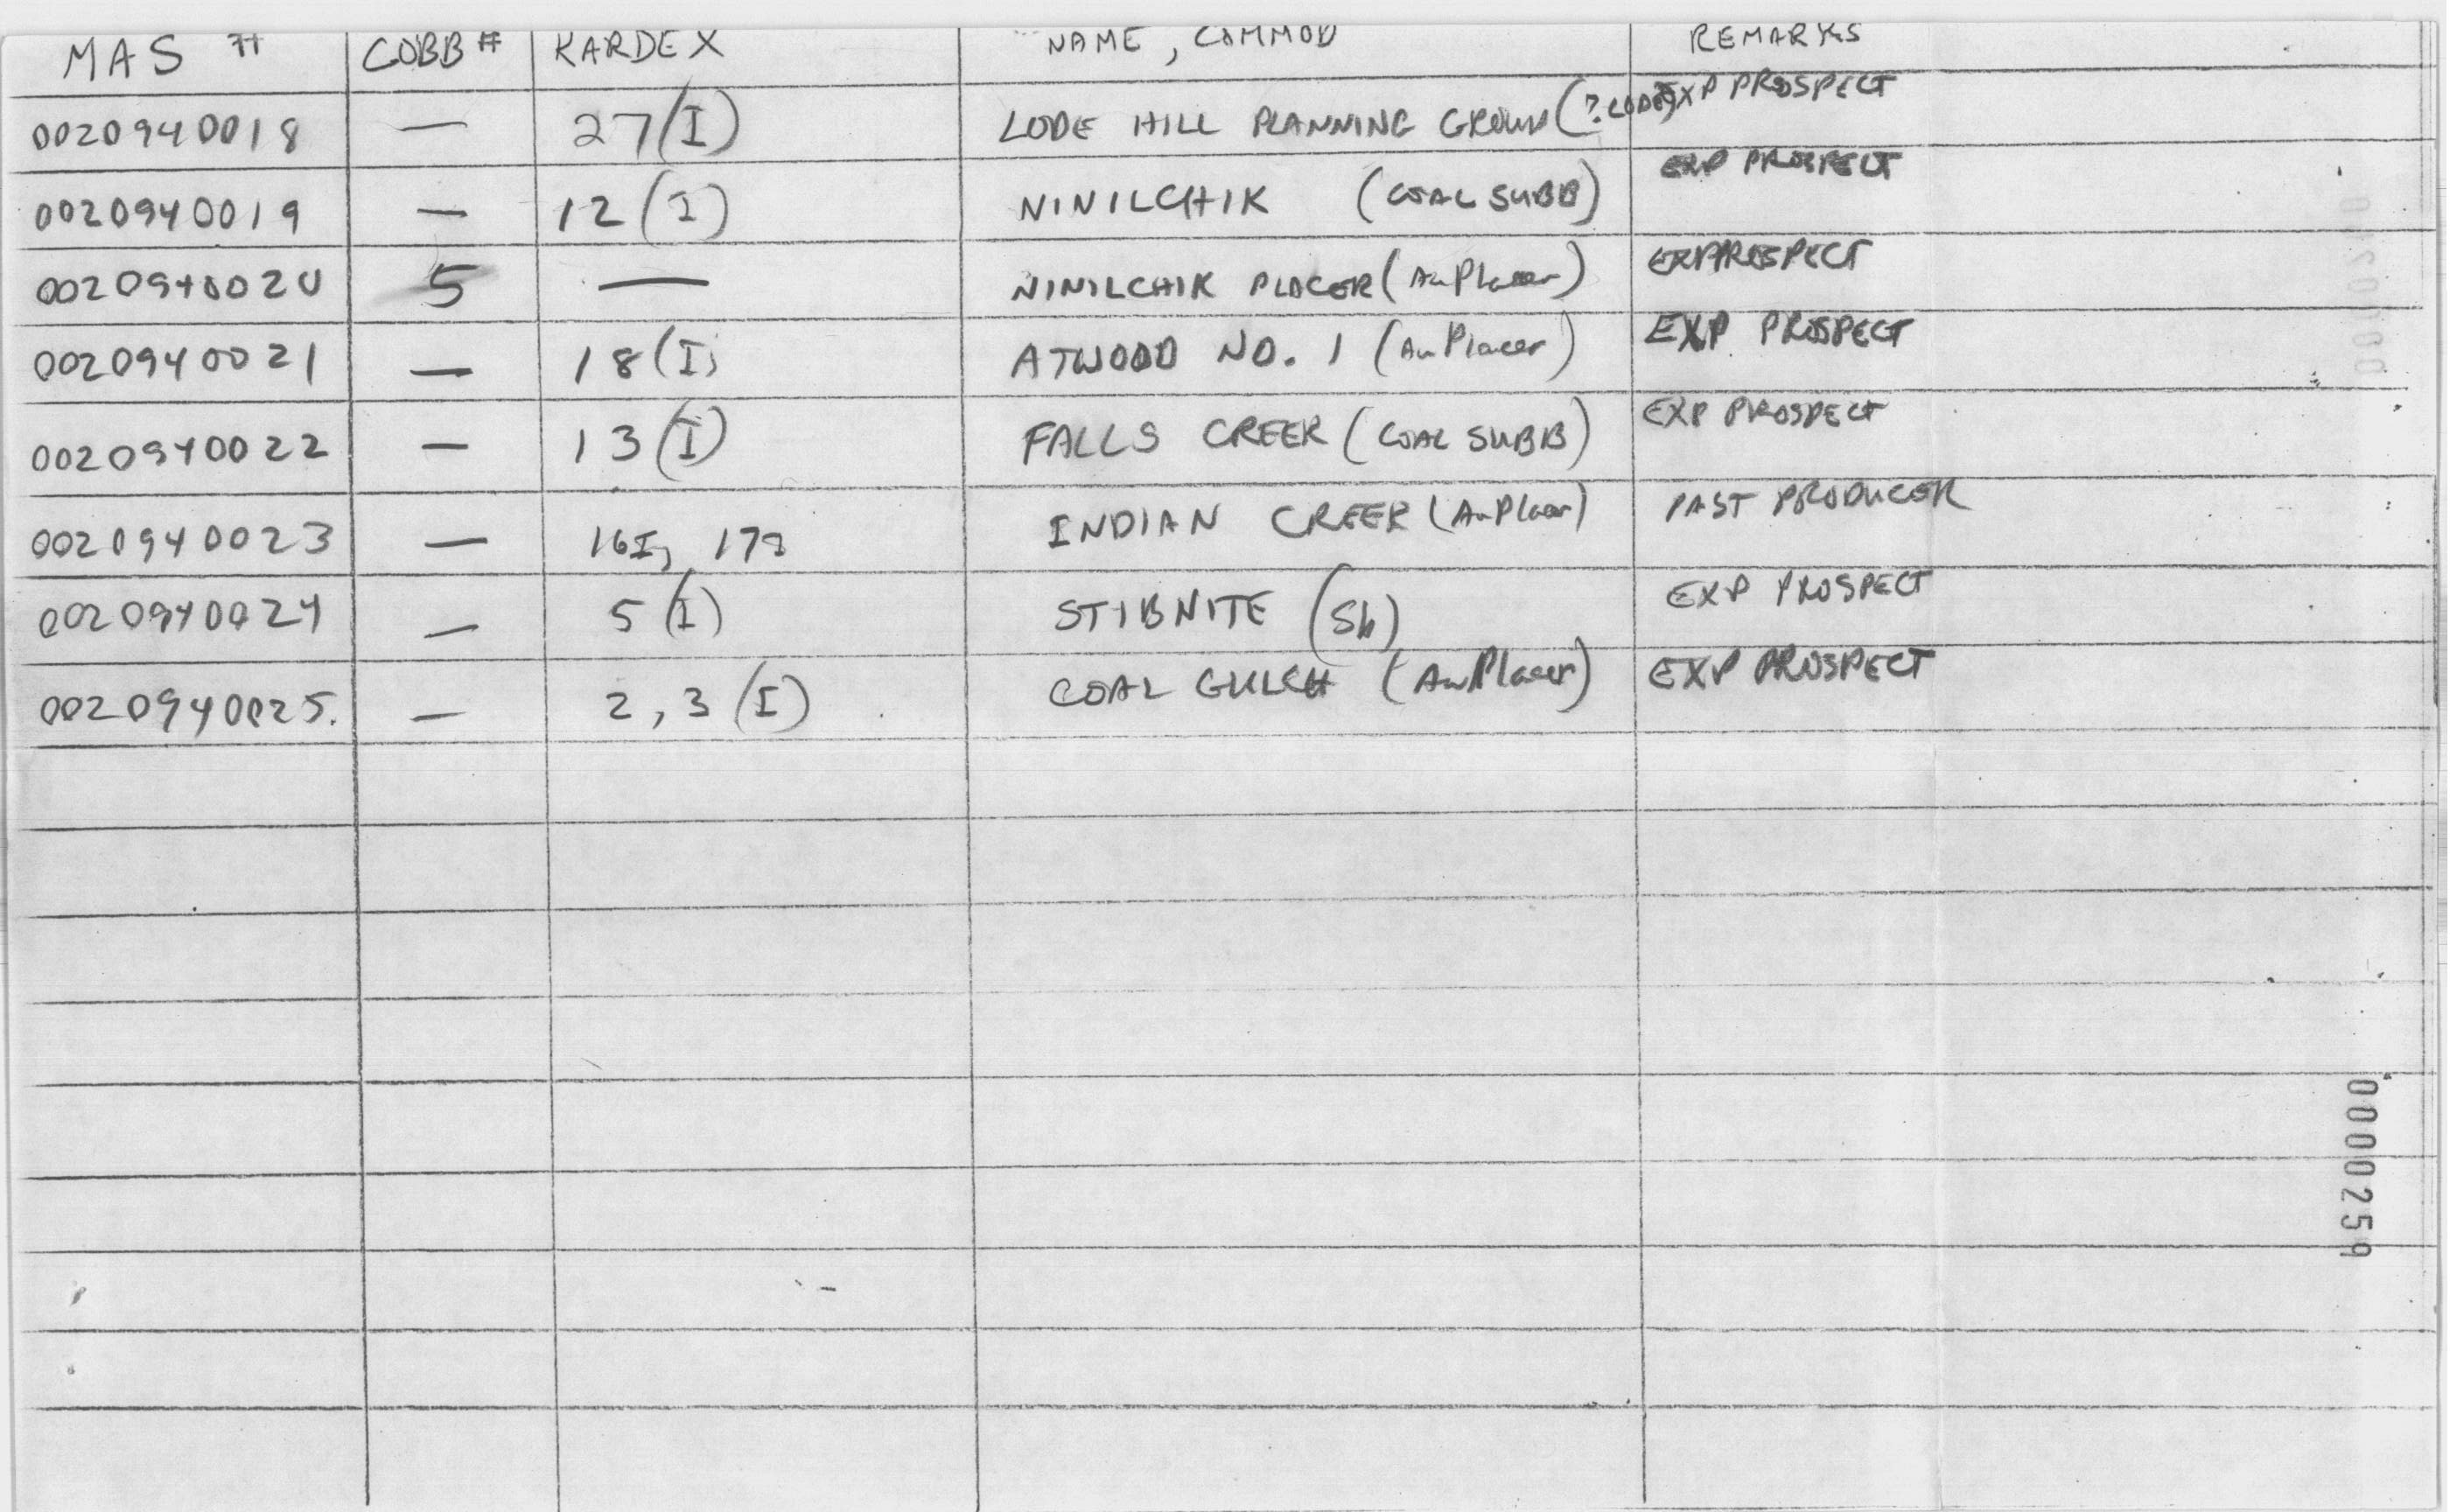 MAS # COBB # KARDEX NAME, COMMOD REMARKS
0020940018 — 27(I) LODE HILL PLANNING GROUP (?LODE) EXP PROSPECT
0020940019 — 12(I) NINILCHIK (COAL SUBB) EXP PROSPECT
0020940020 5 — NINILCHIK PLACER (Au Placer) EXP PROSPECT
0020940021 — 18(I) ATWOOD NO. 1 (Au Placer) EXP PROSPECT
0020940022 — 13(I) FALLS CREEK (COAL SUBB) EXP PROSPECT
0020940023 — 16I, INDIAN CREEK (Au Placer) PAST PRODUCER
0020940024 — 5(I) STIBNITE (Sb) EXP PROSPECT
0020940025. — 2, 3(I) COAL GULCH (Au Placer) EXP PROSPECT
0000259